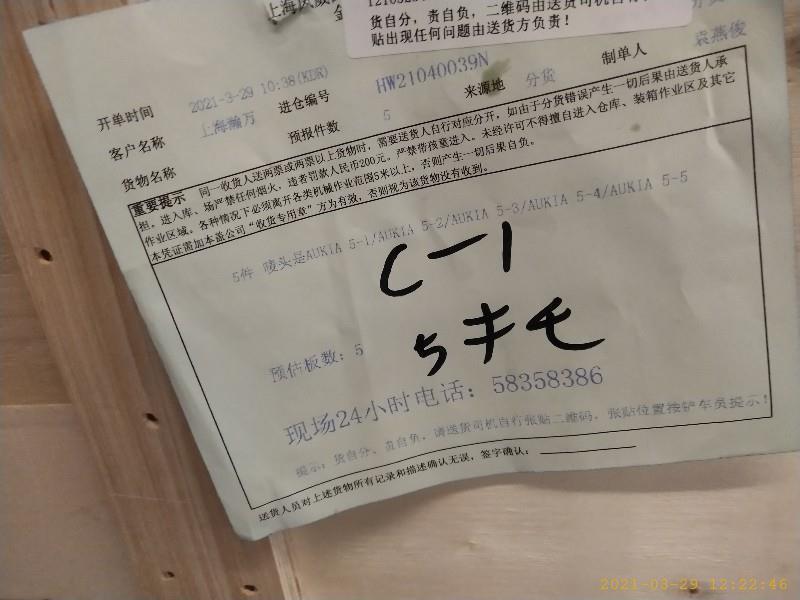 货自分，责自负，二维码由送货司机自行
贴出现任何问题由送货方负责！
开单时间 2021-3-29 10:38(KDR) 进仓编号 HW21040039N 制单人 袁燕俊
客户名称 上海瀚万 预报件数 5 来源地 分货
货物名称
重要提示 同一收货人送两票或两票以上货物时，需要送货人自行对应分开，如由于分货错误产生一切后果由送货人承
担。进入库、场严禁任何烟火，违者罚款人民币200元。严禁带孩童进入。未经许可不得擅自进入仓库、装箱作业区及其它
作业区域。各种情况下必须离开各类机械作业范围5米以上，否则产生一切后果自负。
本凭证需加本盖公司“收货专用章”方为有效，否则视为该货物没有收到。
5件 唛头是AUKIA 5-1/AUKIA 5-2/AUKIA 5-3/AUKIA 5-4/AUKIA 5-5
C-1
预估板数：5
现场24小时电话：58358386
提示：货自分、责自负，请送货司机自行张贴二维码，张贴位置按铲车员提示！
送货人员对上述货物所有记录和描述确认无误，签字确认：
2021-03-29 12:22:46